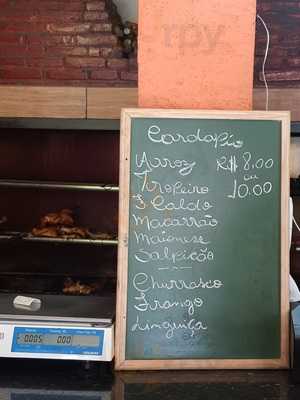 Cardápio
Arroz R$ 8,00
ou
Tropeiro 10,00
F. Caldo
Macarrão
Maionese
Salpicão
Churrasco
Frango
Linguiça
0.005 0.00